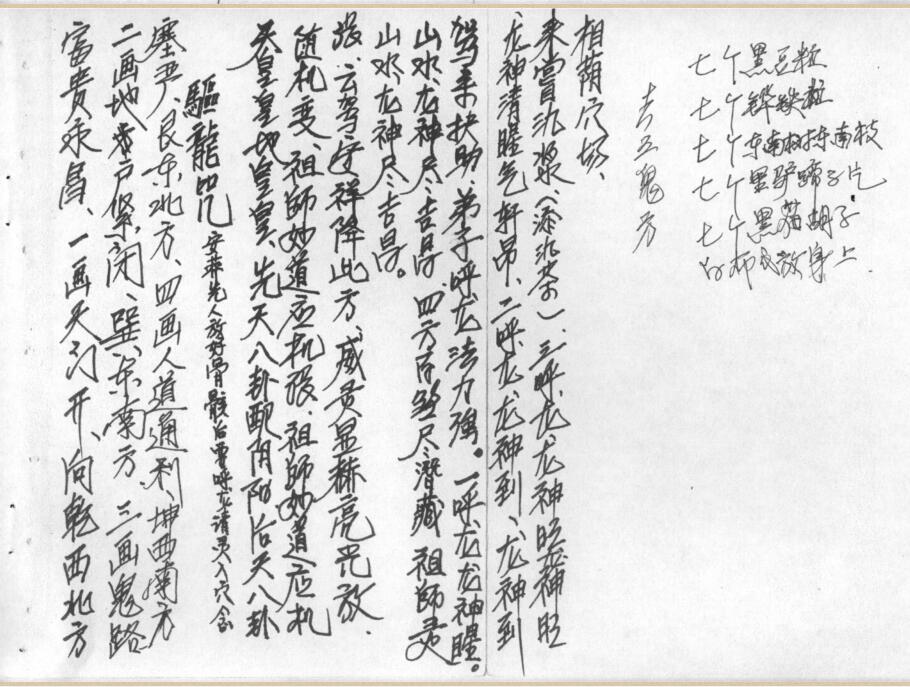 富贵永昌、一画天门开、向乾西北方
二画地户紧闭、巽东南方 三画鬼路
塞严、艮东北方、四画人道通利、坤西南方
驅龍咒 安葬先人放好骨骸后要呼龙请灵入穴念
天皇皇地皇皇、先天八卦配阴阳后天八卦
随机变、祖師妙道应机张、祖師妙道应机
张、云驾安祥降此方、威灵显赫亮光放.
山水、龙神尽、吉昌。
山水、龙神尽、吉昌 四方凶煞尽潜藏 祖師灵
驾来扶助、弟子呼龙法力强。一呼龙龙神醒。
龙神清醒气轩昂、二呼龙龙神到、龙神到
来嘗汎浆(添汎茶)、三呼龙龙神旺龙神旺
相荫穴场、
去五鬼方
七个黑豆粒
七个铧铁粒
七个东南树东南枝
七个黑驴蹄子片
七个黑猫胡子
放身上